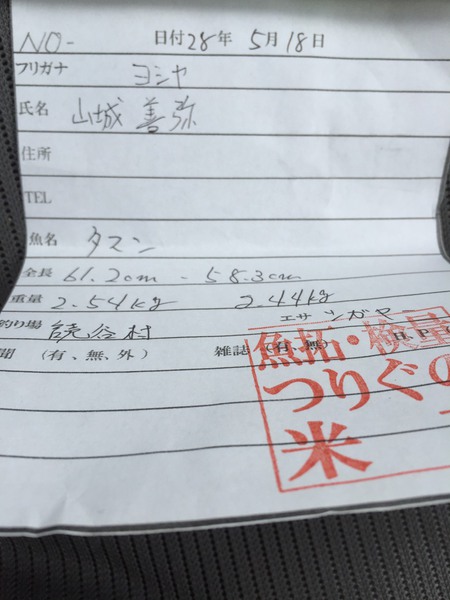 NO-
日付 28年 5月 18日
フリガナ ヨシヤ
氏名 山城 善弥
住所
TEL
魚名 タマン
全長 61.2cm - 58.3cm
重量 2.54kg 2.44kg
釣り場 読谷村 エサ シガヤ
聞 (有、無、外) 雑誌 (有、無) HP
魚拓・検量
つりぐの
米